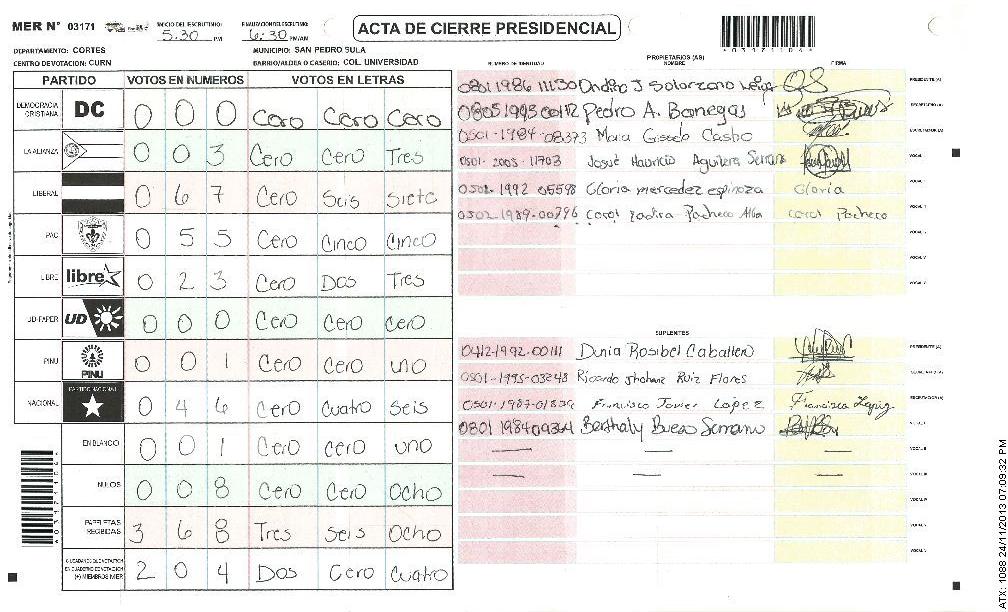 MER N° 03171 INICIO DEL ESCRUTINIO: 5:30 PM FINALIZACION DEL ESCRUTINIO: 6:30 PM/AM ACTA DE CIERRE PRESIDENCIAL
DEPARTAMENTO: CORTES MUNICIPIO: SAN PEDRO SULA
CENTRO DE VOTACION: CURN BARRIO/ALDEA O CASERIO: COL. UNIVERSIDAD
PARTIDO VOTOS EN NUMEROS VOTOS EN LETRAS
DEMOCRACIA CRISTIANA DC 0 0 0 Cero Cero Cero
LA ALIANZA 0 0 3 Cero Cero Tres
LIBERAL 0 6 7 Cero Seis Siete
PAC 0 5 5 Cero Cinco Cinco
LIBRE libre 0 2 3 Cero Dos Tres
UD-FAPER UD 0 0 0 Cero Cero Cero
PINU PINU 0 0 1 Cero Cero uno
NACIONAL PARTIDO NACIONAL 0 4 6 Cero Cuatro Seis
EN BLANCO 0 0 1 Cero cero uno
NULOS 0 0 8 Cero Cero Ocho
PAPELETAS RECIBIDAS 3 6 8 Tres Seis Ocho
(+) MIEMBROS MER 2 0 4 Dos Cero Cuatro
PROPIETARIOS (AS)
NUMERO DE IDENTIDAD NOMBRE FIRMA
0801 1986 11130 J Solorzano PRESIDENTE (A)
Pedro A. Banegas SECRETARIO (A)
0501-1984-08373 Maria Gisela Castro ESCRUTADOR (A)
0501-2003-11703 Josue Mauricio Aguilera VOCAL I
0501-1992 05598 Gloria mercedez espinoza Gloria VOCAL II
0502-1989-00796 carol Pacheco Alba carol Pacheco VOCAL III
VOCAL IV
VOCAL V
SUPLENTES
0412-1992-00111 Dunia Rosibel Caballero PRESIDENTE (A)
0501-1995-03248 Ricardo Jhohan Ruiz Flores SECRETARIO (A)
Francisco Javier Lopez ESCRUTADOR (A)
Berthaly Bueso Serrano VOCAL I
— — — VOCAL II
— — — VOCAL III
VOCAL IV
VOCAL V
ATX: 1088 24/11/2013 07:09:32 PM